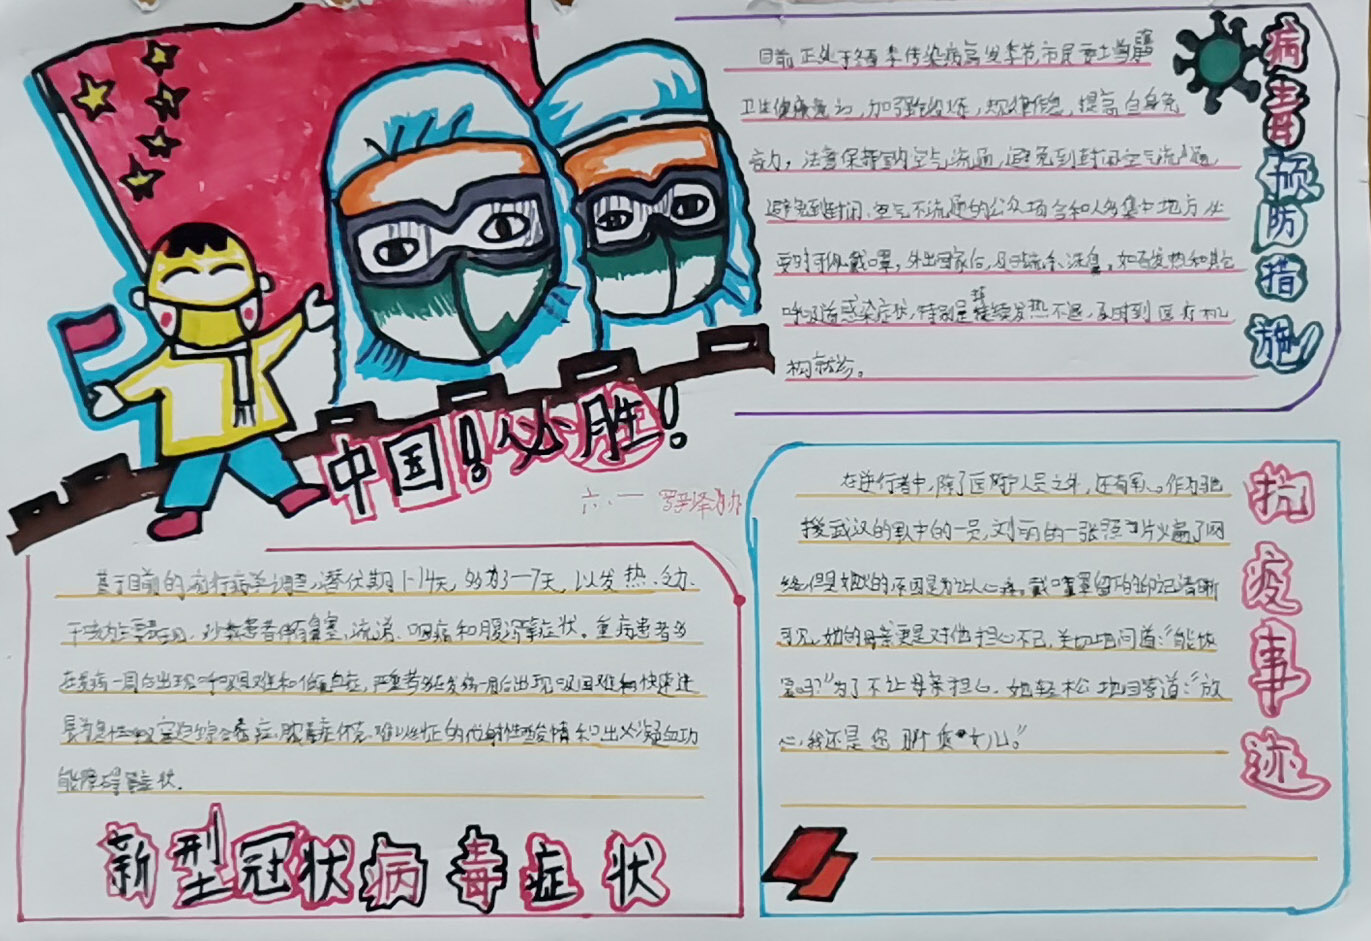 病毒预防措施
目前正处于冬季传染病高发季节,市民要
卫生健康意识,加强锻炼,规律作息,提高自身免
疫力,注意保持室内空气流通,避免到封闭空气流通
避免到封闭、空气不流通的公众场合和人多集中地方必
要时可佩戴口罩,外出回家后,及时洗手,如有发热和其它
呼吸道感染症状,特别是持续发热不退,及时到医疗机
构就诊。
中国!必胜!
六、一
抗疫事迹
在逆行者中,除了医护人员之外,还有军人。作为驰
援武汉的军中的一员,刘丽的一张照片火遍了网
络但是她火的原因是为让人心疼,戴口罩留下的印记清晰
可见,她的母亲更是对他担心不已,关切地问道:“能恢
复吗?”为了不让母亲担心,她轻松地回答道:“放
心,我还是您那女儿。”
基于目前的流行病学调查,潜伏期1-14天,多为3-7天,以发热、乏力、
干咳为主要表现,少数患者伴有鼻塞,流涕、咽痛和腹泻等症状。重病患者多
在发病一周后出现呼吸困难和低氧血症,严重者多在发病一周后出现呼吸困难和快速进
展为急性呼吸窘迫综合征症,脓毒症休克,难以纠正的代谢性酸中毒和出凝血功
能障碍等症状.
新型冠状病毒症状